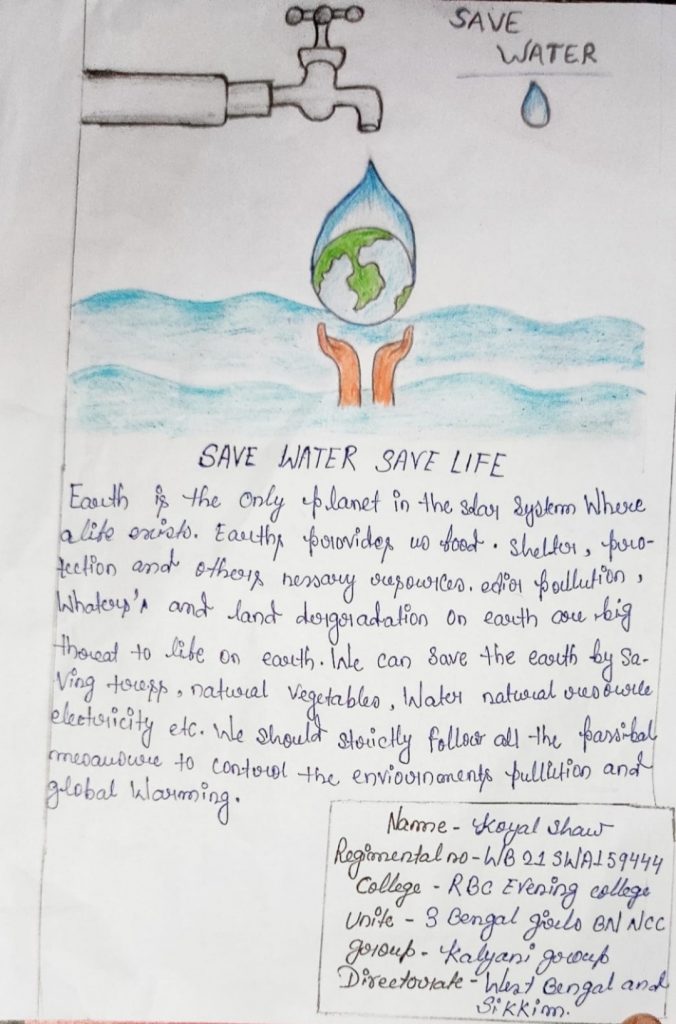 SAVE
WATER
SAVE WATER SAVE LIFE
Earth is the only planet in the solar system Where
a life exists. Earths provides us food. shelter, pro-
tection and others nessary resources. edior pollution,
Whaters's and land dergoradation on earth are big
thereat to life on earth. We can save the earth by sa-
ving trees, natural vegetables, Water natural resource
electricity etc. We should strictly follow all the passibal
measure to control the enviornments pullition and
global Warming.
Name - Koyal Shaw
Regimental no - WB 21 SWA159444
College - RBC Evening college
Unite - 3 Bengal girls BN NCC
group - Kalyani group
Directorate - West Bengal and
Sikkim.